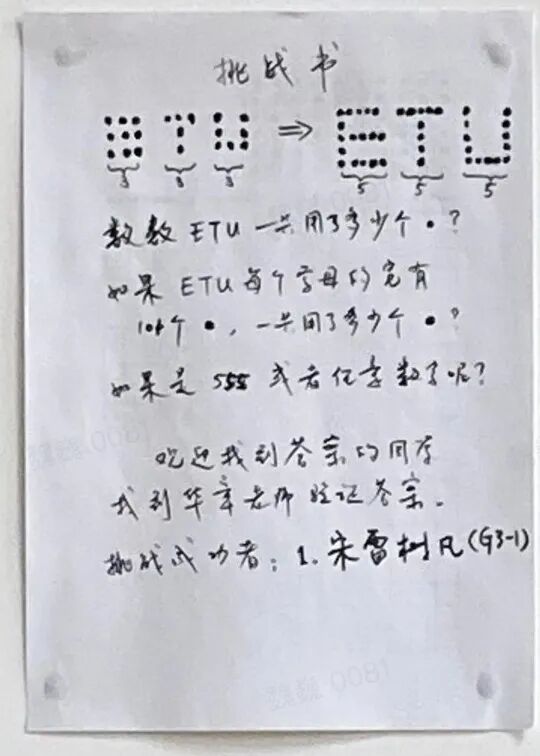 挑战书
ETU ⇒ ETU
3 3 3 5 5 5
数数 ETU 一共用了多少个 •？
如果 ETU 每个字母的宽有
101个 •，一共用了多少个 •？
如果是 555 或者任意数字呢？
欢迎找到答案的同学
找到华章老师验证答案.
挑战成功者：1. 宋雷树凡(G3-1)
魏巍 0081
魏巍 0081